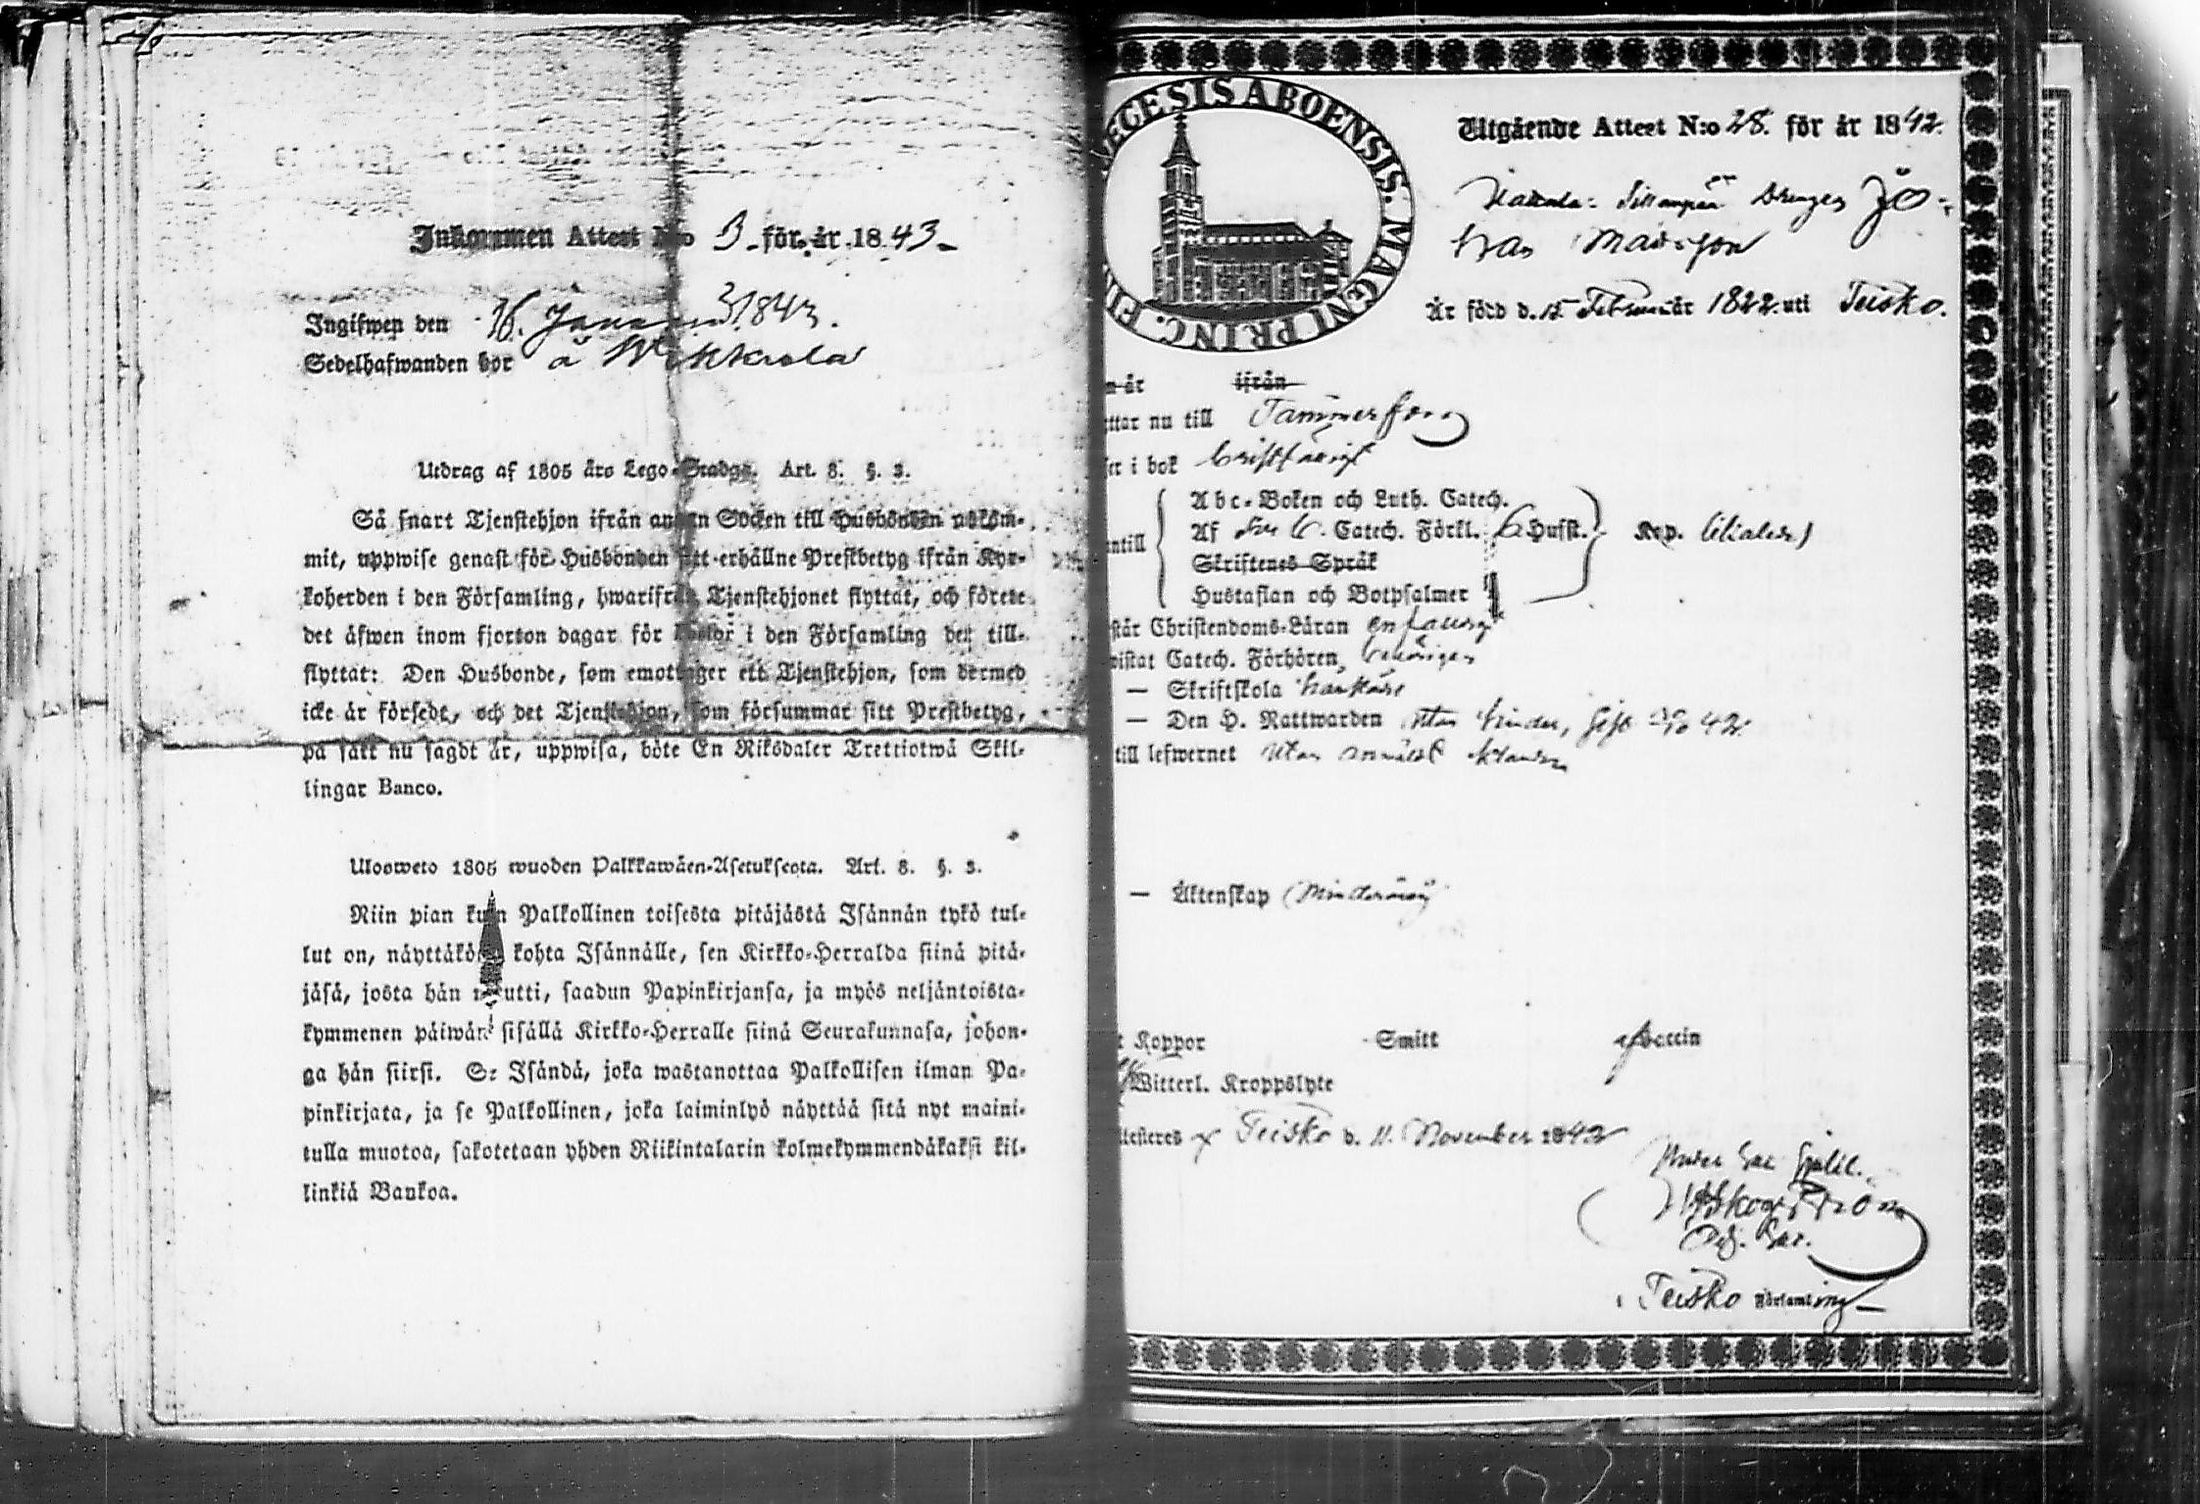 Inkommen Attest N:o 3. för år 1843.
Ingifwen den 16. Januarii 1843.
Sedelhafwanden bor å
Utdrag af 1805 års Lego-Stadga. Art. 8. §. 3.
Så snart Tjenstehjon ifrån annan Socken till Husbonden ankom-
mit, uppwise genast för Husbonden sitt erhållne Prestbetyg ifrån Kyr-
koherden i den Församling, hwarifrån Tjenstehjonet flyttat, och förete
det äfwen inom fjorton dagar för Pastor i den Församling det till-
flyttat: Den Husbonde, som emottager ett Tjenstehjon, som dermed
icke är försedt, och det Tjenstehjon, som försummar sitt Prestbetyg,
på sätt nu sagdt är, uppwisa, böte En Riksdaler Trettiotwå Skil-
lingar Banco.
Uloosweto 1805 wuoden Palkkawäen-Asetuksesta. Art. 8. §. 3.
Niin pian kuin Palkollinen toisesta pitäjästä Isännän tykö tul-
lut on, näyttäköön kohta Isännälle, sen Kirkko-Herralda siinä pitä-
jäsä, josta hän muutti, saadun Papinkirjansa, ja myös neljäntoista-
kymmenen päiwän sisällä Kirkko-Herralle siinä Seurakunnasa, johon-
ga hän siirsi. Se Isändä, joka wastanottaa Palkollisen ilman Pa-
pinkirjata, ja se Palkollinen, joka laiminlyö näyttää sitä nyt maini-
tulla muotoa, sakotetaan yhden Riikintalarin kolmekymmendäkaksi kil-
linkiä Bankoa.
ECESIS ABOENSIS. MAGNI PRINC. FIN
Utgående Attest N:o 28. för år 1842.
Drängen Jo-
has Madsson
Är född d. 15. Februari år 1822. uti Teisko.
år ifrån
ttar nu till Tammerfors
er i bok
Abc-Boken och Luth. Catech.
Af Catech. Förkl. Hufst.
antill
Skriftenes Språk
Hustaflan och Botpsalmer
står Christendoms-Läran
wistat Catech. Förhören,
— Skriftskola
— Den H. Nattwarden utan hinder, 42.
till lefwernet utan anmäldt
— Äktenskap
t Koppor Smitt af Vaccin
Witterl. Kroppslyte
ttesteres Teisko d. 11. November 1842
Teisko Församling